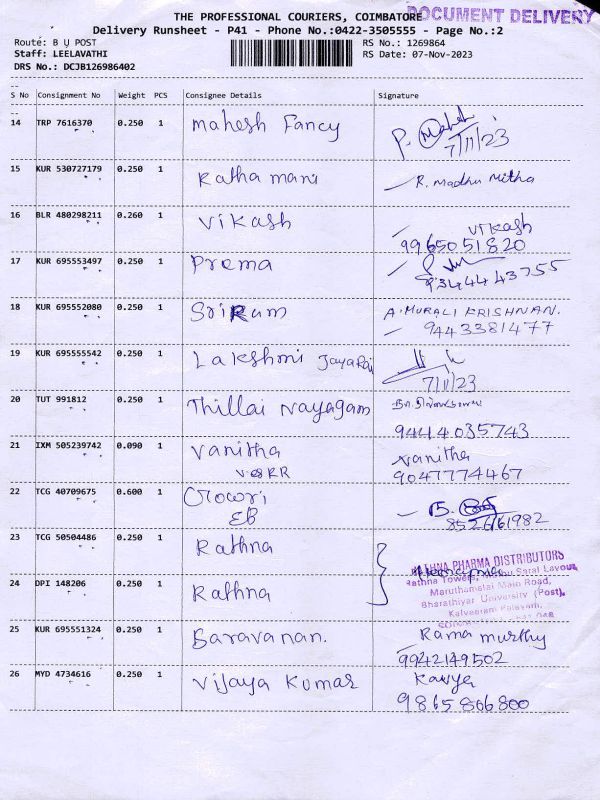 DOCUMENT DELIVERY
THE PROFESSIONAL COURIERS, COIMBATORE
Delivery Runsheet - P41 - Phone No.:0422-3505555 - Page No.:2
Route: B U POST
Staff: LEELAVATHI
DRS No.: DCJB126986402
RS No.: 1269864
RS Date: 07-Nov-2023
S No Consignment No Weight PCS Consignee Details Signature
14 TRP 7616370 0.250 1 Mahesh Fancy P. Mahesh
7/11/23
15 KUR 530727179 0.250 1 Ratha mani R. Madhu Mitha
16 BLR 480298211 0.260 1 Vikash Vikash
9965051820
17 KUR 695553497 0.250 1 Prema
9344443755
18 KUR 695552080 0.250 1 SriRam A. MURALI KRISHNAN.
9443381477
19 KUR 695555542 0.250 1 Lakshmi Jayaraj
7/11/23
20 TUT 991812 0.250 1 Thillai Nayagam
9444035743
21 IXM 505239742 0.090 1 Vanitha Vanitha
9047774467
22 TCG 40709675 0.600 1 Gowri B.
EB 8526161982
23 TCG 50504486 0.250 1 Rathna
RATHNA PHARMA DISTRIBUTORS
Rathna Towers, Saral Lavour
24 DPI 148206 0.250 1 Rathna
Maruthamalai Main Road,
Bharathiyar University (Post),
Kalveerani Palayam,
25 KUR 695551324 0.250 1 Saravanan. Rama Murthy
9942149502
26 MYD 4734616 0.250 1 Vijaya Kumar Kavya
9865866800